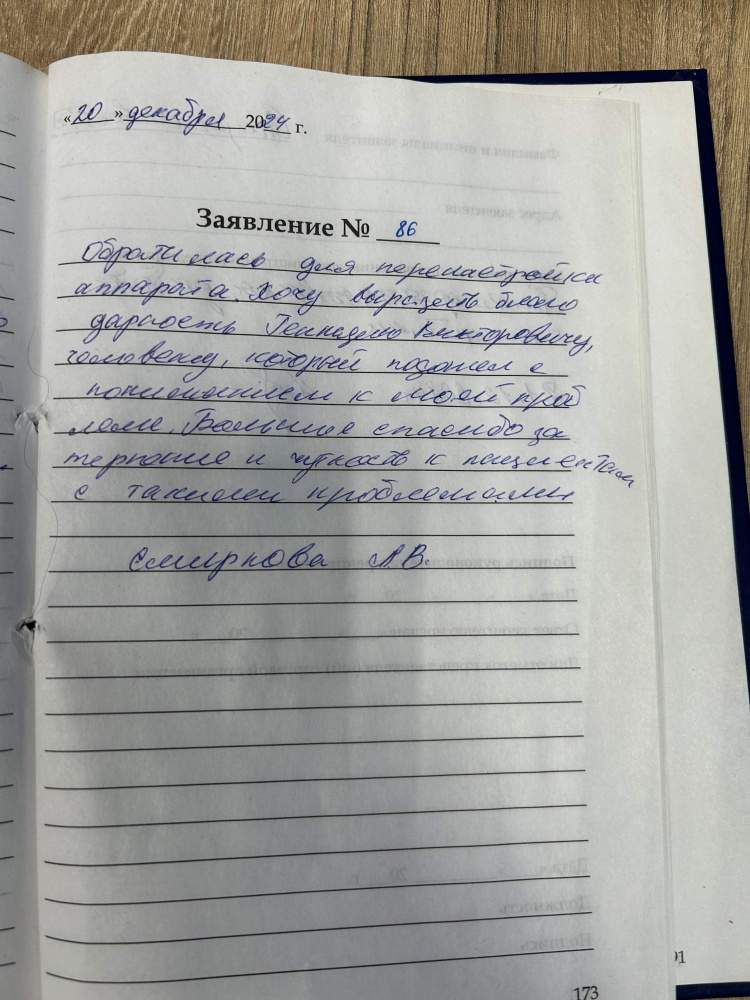 «20» декабря 2024 г.
Заявление № 86
Обратилась для перенастройки
аппарата. Хочу выразить благо
дарность Геннадию Викторовичу,
человеку, который подошел с
пониманием к моей проб
леме. Большое спасибо за
терпение и чуткость к пациентам
с такими проблемами
Смирнова Л.В.
173
91